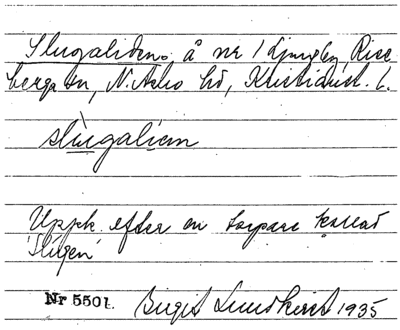 Slugaliden. å nr 1 Ljungby, Rise
berga sn, N. Åsbo hd, Kristianst. l.
slugaliɛn
Uppk. efter en torpare kallad
'Slugen'
Nr 5501. Birgit Lundkvist 1935